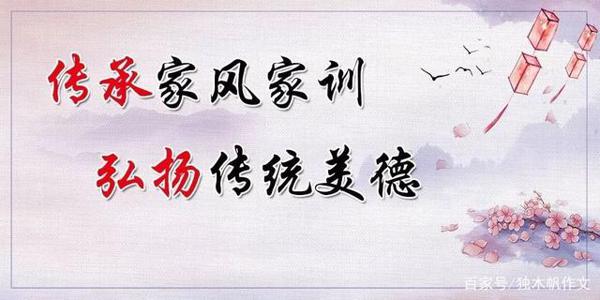 传承家风家训
弘扬传统美德
百家号/独木帆作文